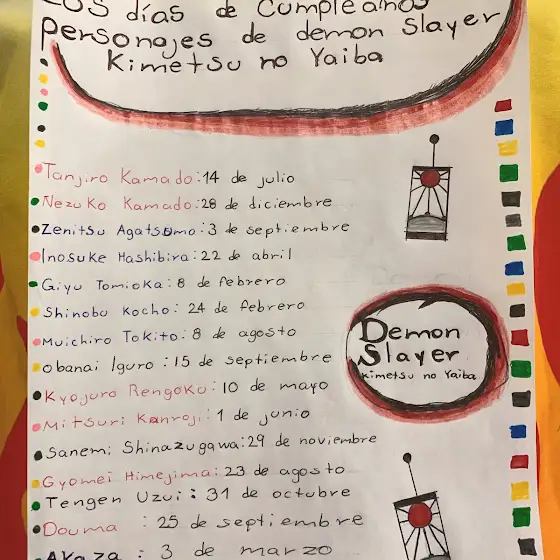 Los días de Cumpleaños
personajes de demon Slayer
Kimetsu no Yaiba
Tanjiro Kamado: 14 de julio
Nezuko Kamado: 28 de diciembre
Zenitsu Agatsumo: 3 de septiembre
Inosuke Hashibira: 22 de abril
Giyu Tomioka: 8 de febrero
Shinobu Kocho: 24 de febrero
Muichiro Tokito: 8 de agosto
obanai Iguro: 15 de septiembre
Kyojuro Rengoku: 10 de mayo
Mitsuri Kanroji: 1 de junio
Sanemi Shinazugawa: 29 de noviembre
Gyomei Himejima: 23 de agosto
Tengen Uzui: 31 de octubre
Douma: 25 de septiembre
Akaza: 3 de marzo
Demon
Slayer
Kimetsu no Yaiba